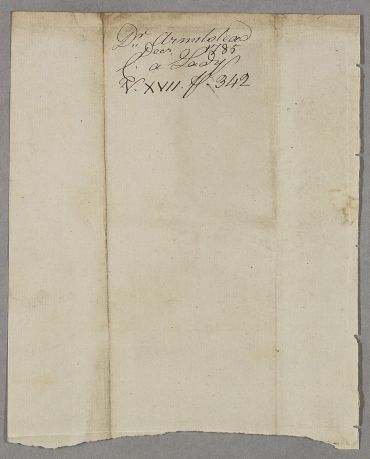 Dr Armistead
Decr 1785
a Lady
V. XVII. ff. 342